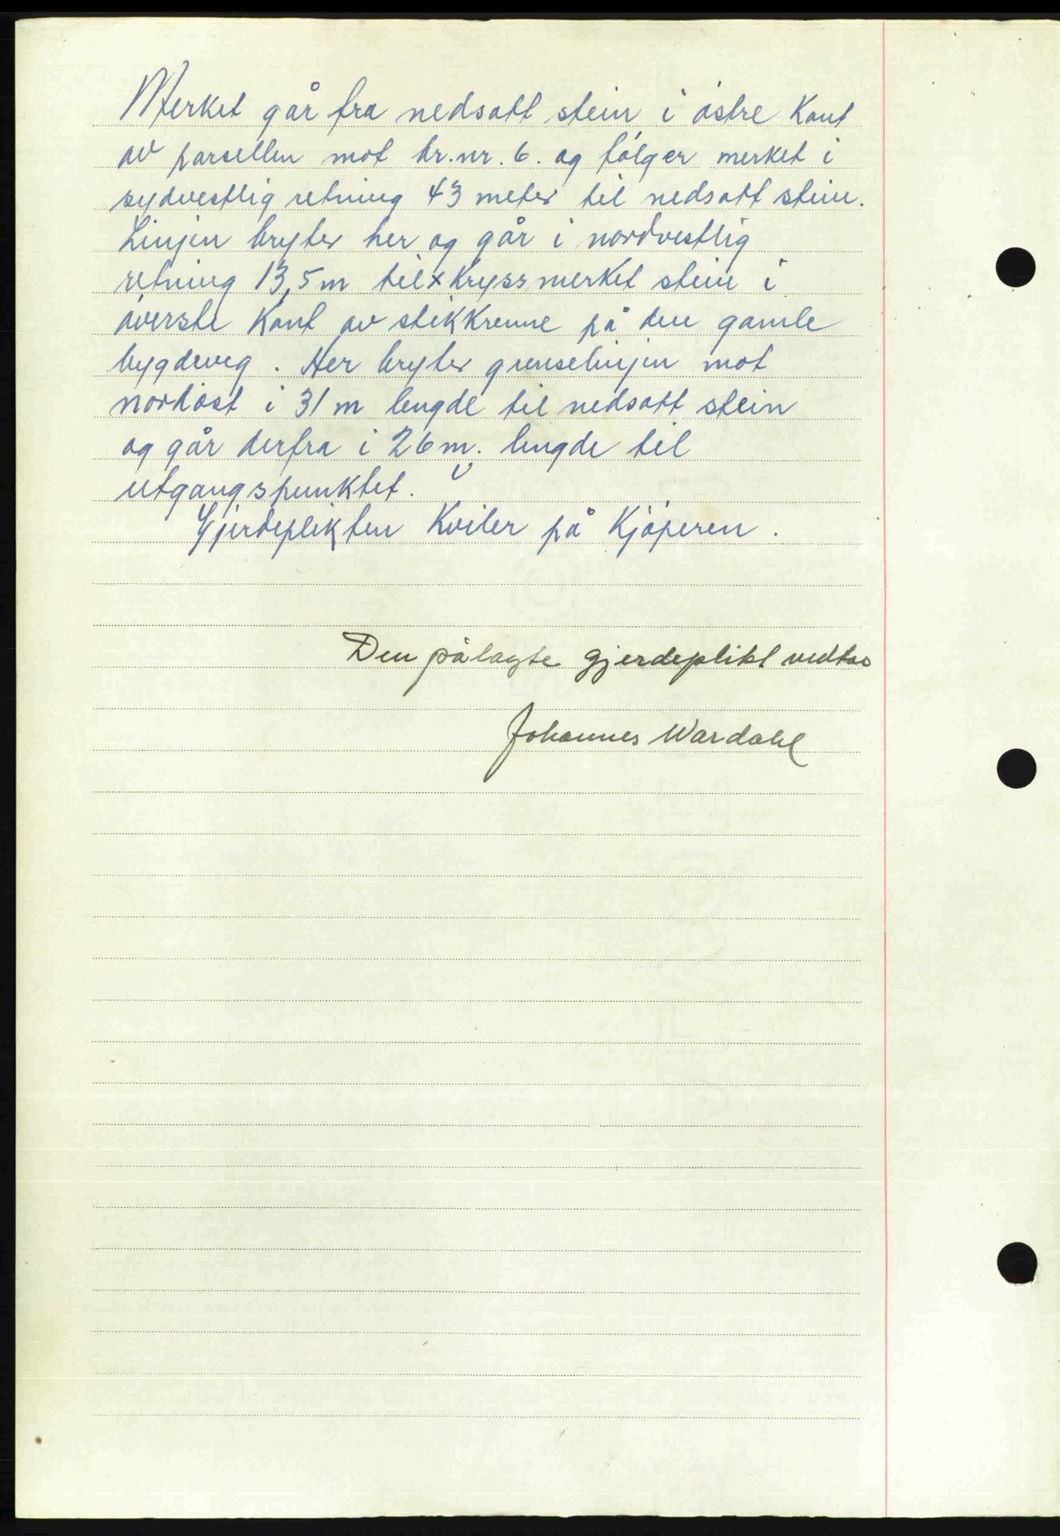 Merket går fra nedsatt stein i østre Kant
av parsellen mot br.nr. 6. og følger merket i
sydvestlig retning 43 meter til nedsatt stein.
Linjen bryter her og går i nordvestlig
retning 13,5 m til x kryssmerket stein i
øverste Kant av stikkrenne på den gamle
bygdeveg. Her bryter grenselinjen mot
nordøst i 31 m lengde til nedsatt stein
og går derfra i 26 m. lengde til
utgangspunktet.
Gjerdeplikten Kviler på Kjøperen.
Den pålagte gjerdeplikt vedtas
Johannes Wardahl